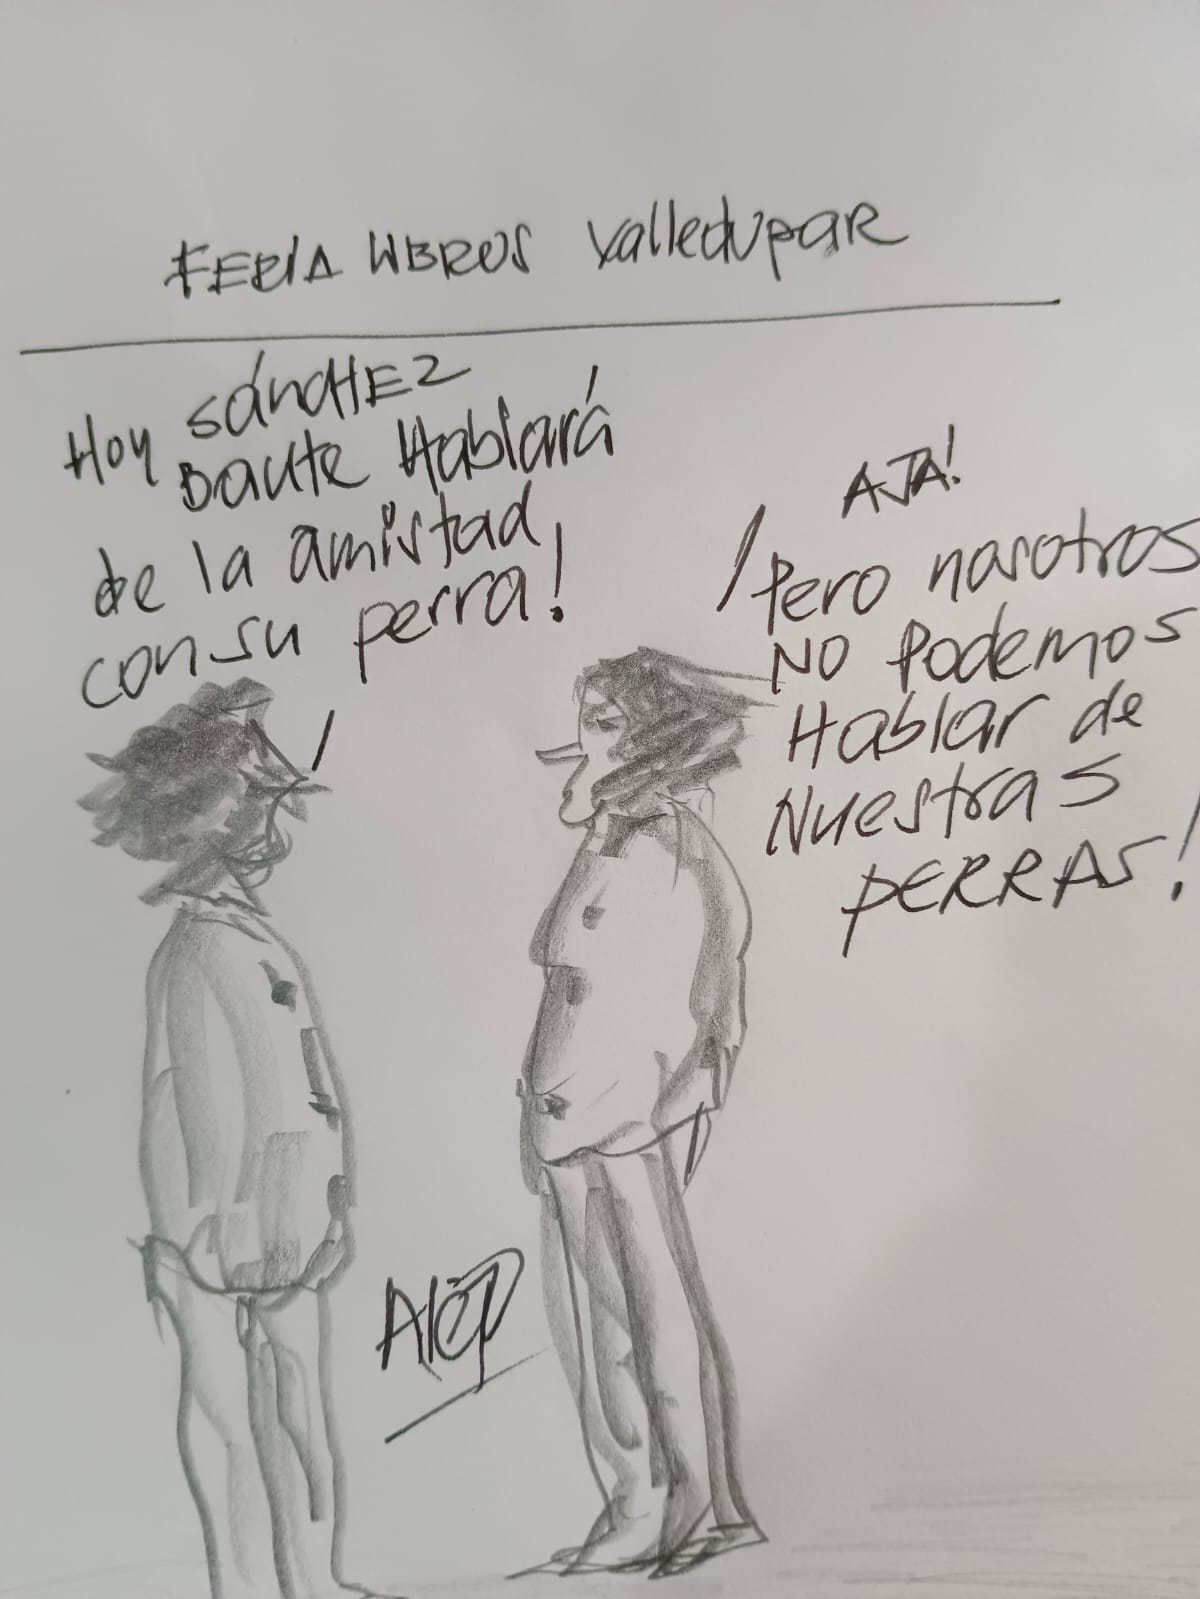 FERIA LIBROS Valledupar
Hoy SÁNCHEZ
Baute Hablará
de la amistad
con su perra!
AJA!
Pero nosotros
NO Podemos
Hablar de
Nuestras
PERRAS!
Alép